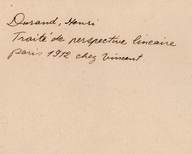 Durand, Henri
Traité de perspective lineaire
paris 1912 chez Vincent